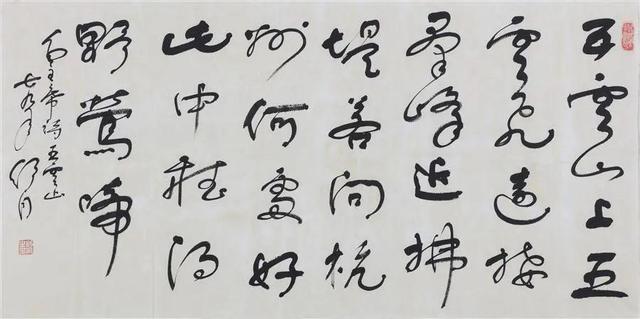 五雲山上五
雲飛遠接
羣峰近拂
堤若问杭
州何處好
此中聽得
野鶯啼
毛主席诗五雲山
七九年